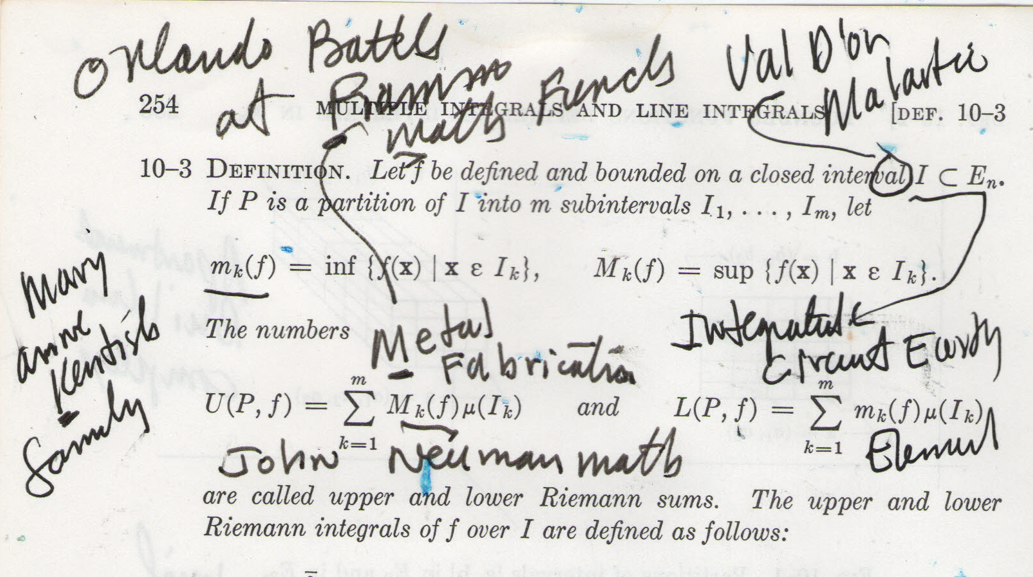 Orlando Battels
at
Val D'or
Malartic
254 MULTIPLE INTEGRALS AND LINE INTEGRALS [DEF. 10–3
math
10–3 DEFINITION. Let f be defined and bounded on a closed interval I ⊂ Eₙ.
If P is a partition of I into m subintervals I₁, . . . , Iₘ, let
mₖ(f) = inf {f(x) | x ε Iₖ}, Mₖ(f) = sup {f(x) | x ε Iₖ}.
Mary
anne
Kentish
family
The numbers
Metal
Fabrication
Integrated
Circuit Earth
U(P, f) = ∑ₖ₌₁ᵐ Mₖ(f)μ(Iₖ) and L(P, f) = ∑ₖ₌₁ᵐ mₖ(f)μ(Iₖ)
John Neuman math
are called upper and lower Riemann sums. The upper and lower
Riemann integrals of f over I are defined as follows: